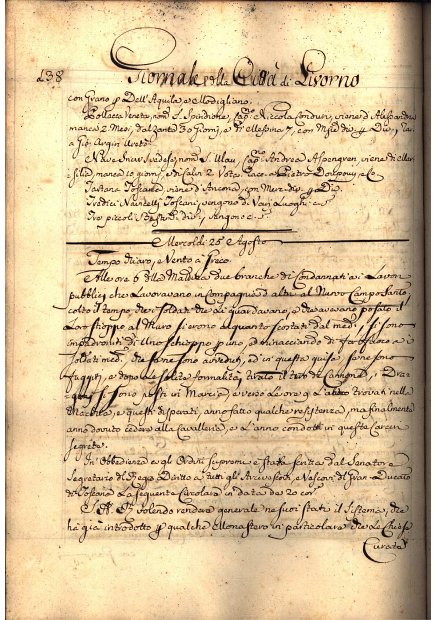 138
Giornale della Città di Livorno
con Grano p Dell'Aquila, e Modigliano.
Pollacca Veneta, nom. S. Spiridione, Cap. Niccola Condurì, viene d'Alessandria
manca 2 Mesi, dal Zante 30 Giorni, e di Messina 7, con Mers. div.
a Gio: Argiri
Nave Svedese, nom. S. Ulau, Cap. Andrea Aspengren, viene di Mar-
silia, manca 10 giorni, Pietro Dorposy, e Co
Tartana Toscana, viene d'Ancona, con Merz. div. p Div.
Tredici Navicelli Toscani, vengono da Varj Luoghi
Tre piccoli Bastim.ti div.i, vengono
Mercoldi 25 Agosto
Tempo chiaro, e Vento a Greco
Alle ore 6 della Mattina due branche di Condannati a i Lavori
pubblici che Lavoravano in Compagnia d'altri al Nuovo Campo Santo,
colto il tempo che i Soldati che Li guardavano, e che avevano posato il
Loro Schioppo al Muro si erono alquanto scostati dal med.o, si sono
impadroniti di Uno Schioppo p uno, e minacciando di far fuoco a i
Soldati med.i che se ne sono avveduti, ed in questa guisa se ne sono
fuggiti, e dopo le solite formalità, tirato il tiro di Cannone, i Dra-
goni si sono messi in Marcia, e verso Le ore 9 Li anno trovati nella
Macchia, e questi disperati, anno fatto qualche resistenza, ma finalmente
anno dovuto cedere alla Cavalleria, e L'anno condotti in queste Carceri
segrete.
In Obbedienza degli Ordini Supremi è stata scritta dal Senatore
Segretario del Regio Diritto a tutti gli Arcivescovi, e Vescovi del Gran-Ducato
di Toscana La seguente Circolare in data de 20 cor.e
S. A. R. Volendo rendere generale ne suoi stati il Sistema, che
ha già introdotto p qualche Monastero in particolare che Le Chiese
Curate